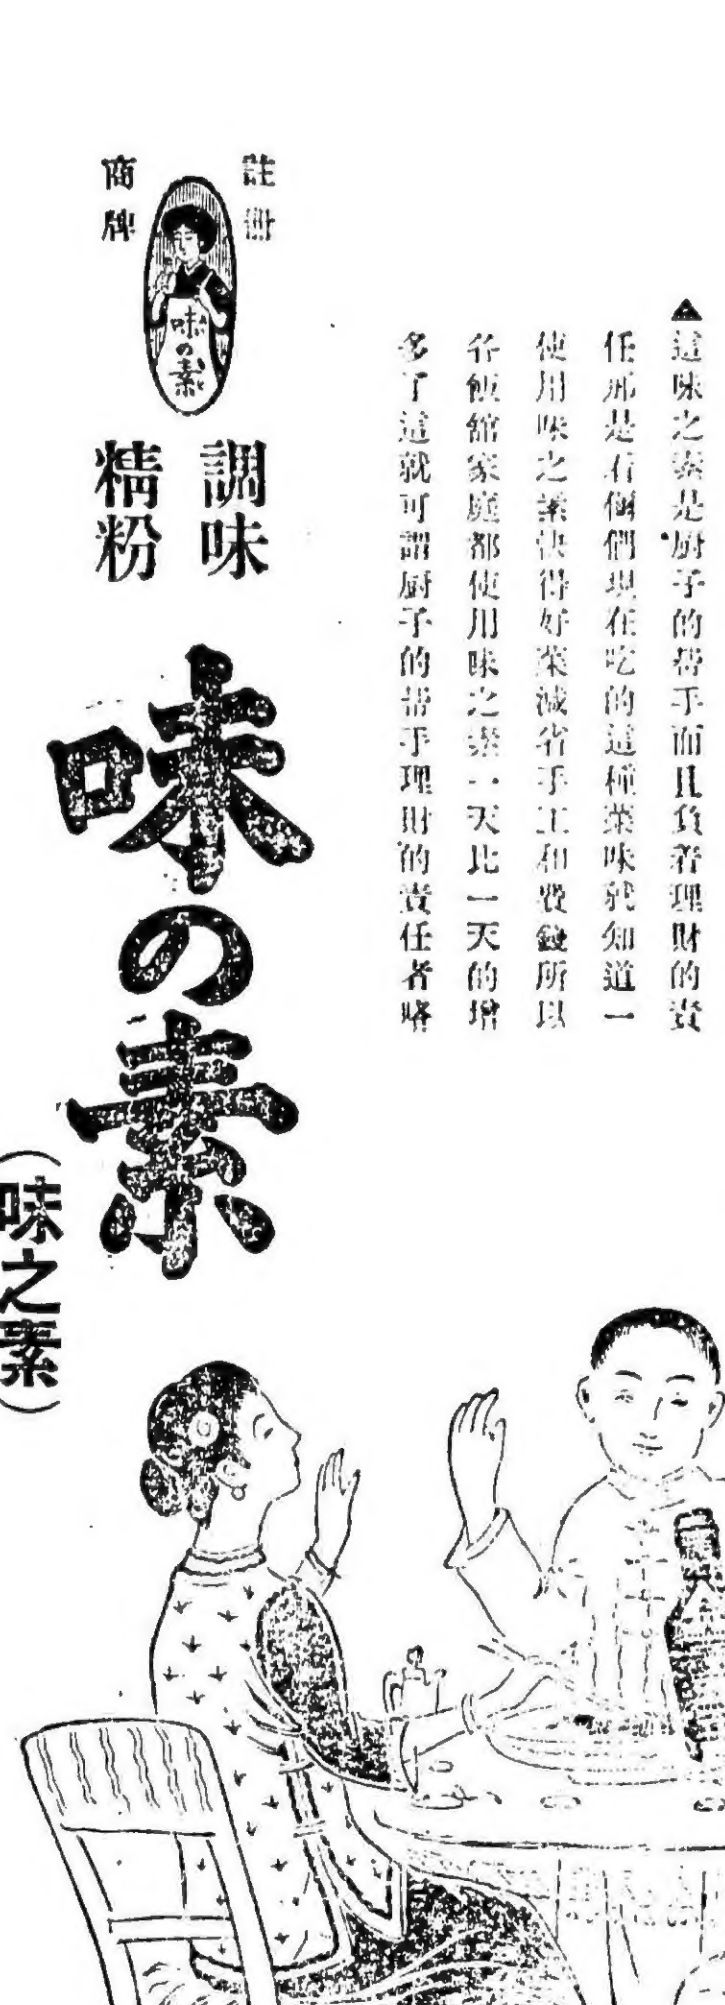 ▲這味之素是厨子的帮手而且負着理財的責
任那是看倆們現在吃的這種菜味就知道一
使用味之素快得好菜減省手工和費錢所以
各飯館家庭都使用味之素一天比一天的增
多了這就可謂厨子的帮手理財的責任者咯
註冊
商牌
味の素
調味
精粉
味の素
(味之素)